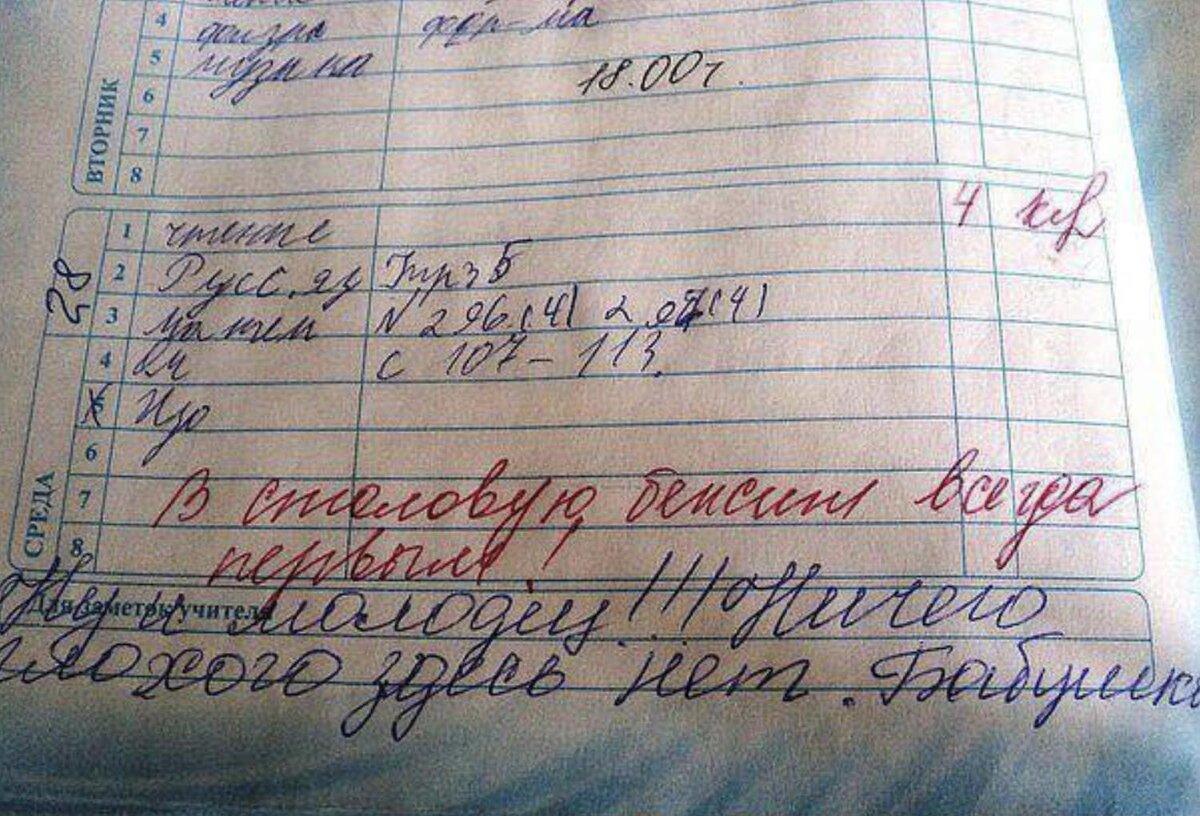 4 физра фор-ма
5 музыка
6 18.00г.
7
8
ВТОРНИК
1 чтение 4
2 Русс.яз Упр 3 Б
3 матем N 296(4) 2.97(4)
4 с 107-113.
5 Изо
6
7 В столовую бежит всегда
8 первым!
СРЕДА
28
Для заметок учителя
Ну и молодец!!! Ничего
плохого здесь нет. Бабушка